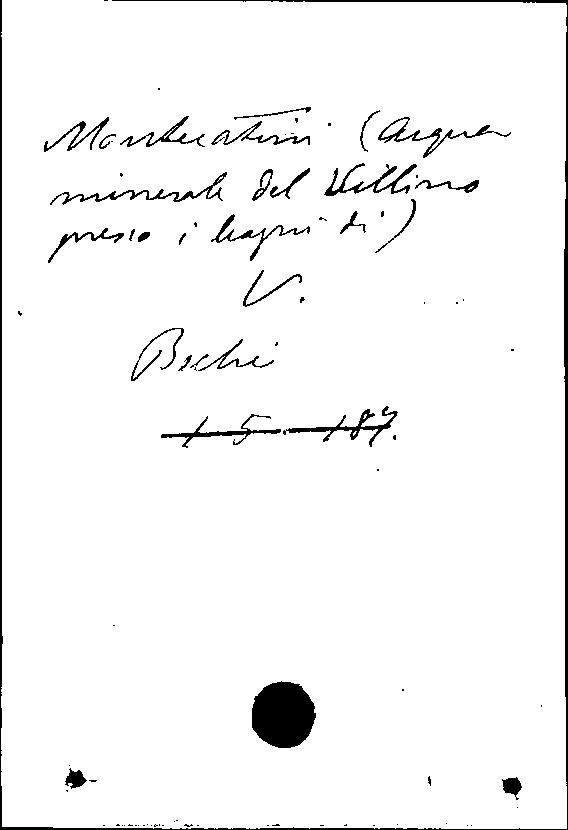 Montecatini (Acqua
minerale del Villino
presso i bagni di)
V.
Bechi
1 5. 187.